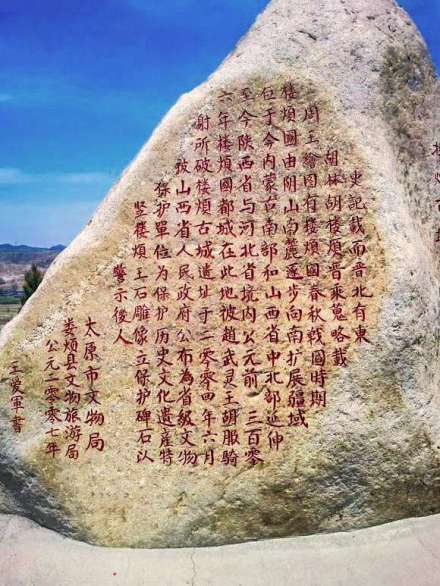 史記載而晉北有東
胡林胡楼煩晉乘蒐略載
周王繪图有楼煩國春秋战國時期
楼煩國由阴山南麓逐步向南扩展疆域
位于今内蒙古南部和山西省中北部延伸
至今陕西省与河北省境内公元前三百零
六年楼煩國都城在此地被赵武灵王胡服騎
射所破楼煩古城遺址于二零零四年六月
山西省人民政府公布為省級文物
保护單位為保护历史文化遺産特
竖楼煩王石雕像立保护碑石以
警示後人
太原市文物局
娄烦县文物旅游局
公元二零零七年
王愛軍書